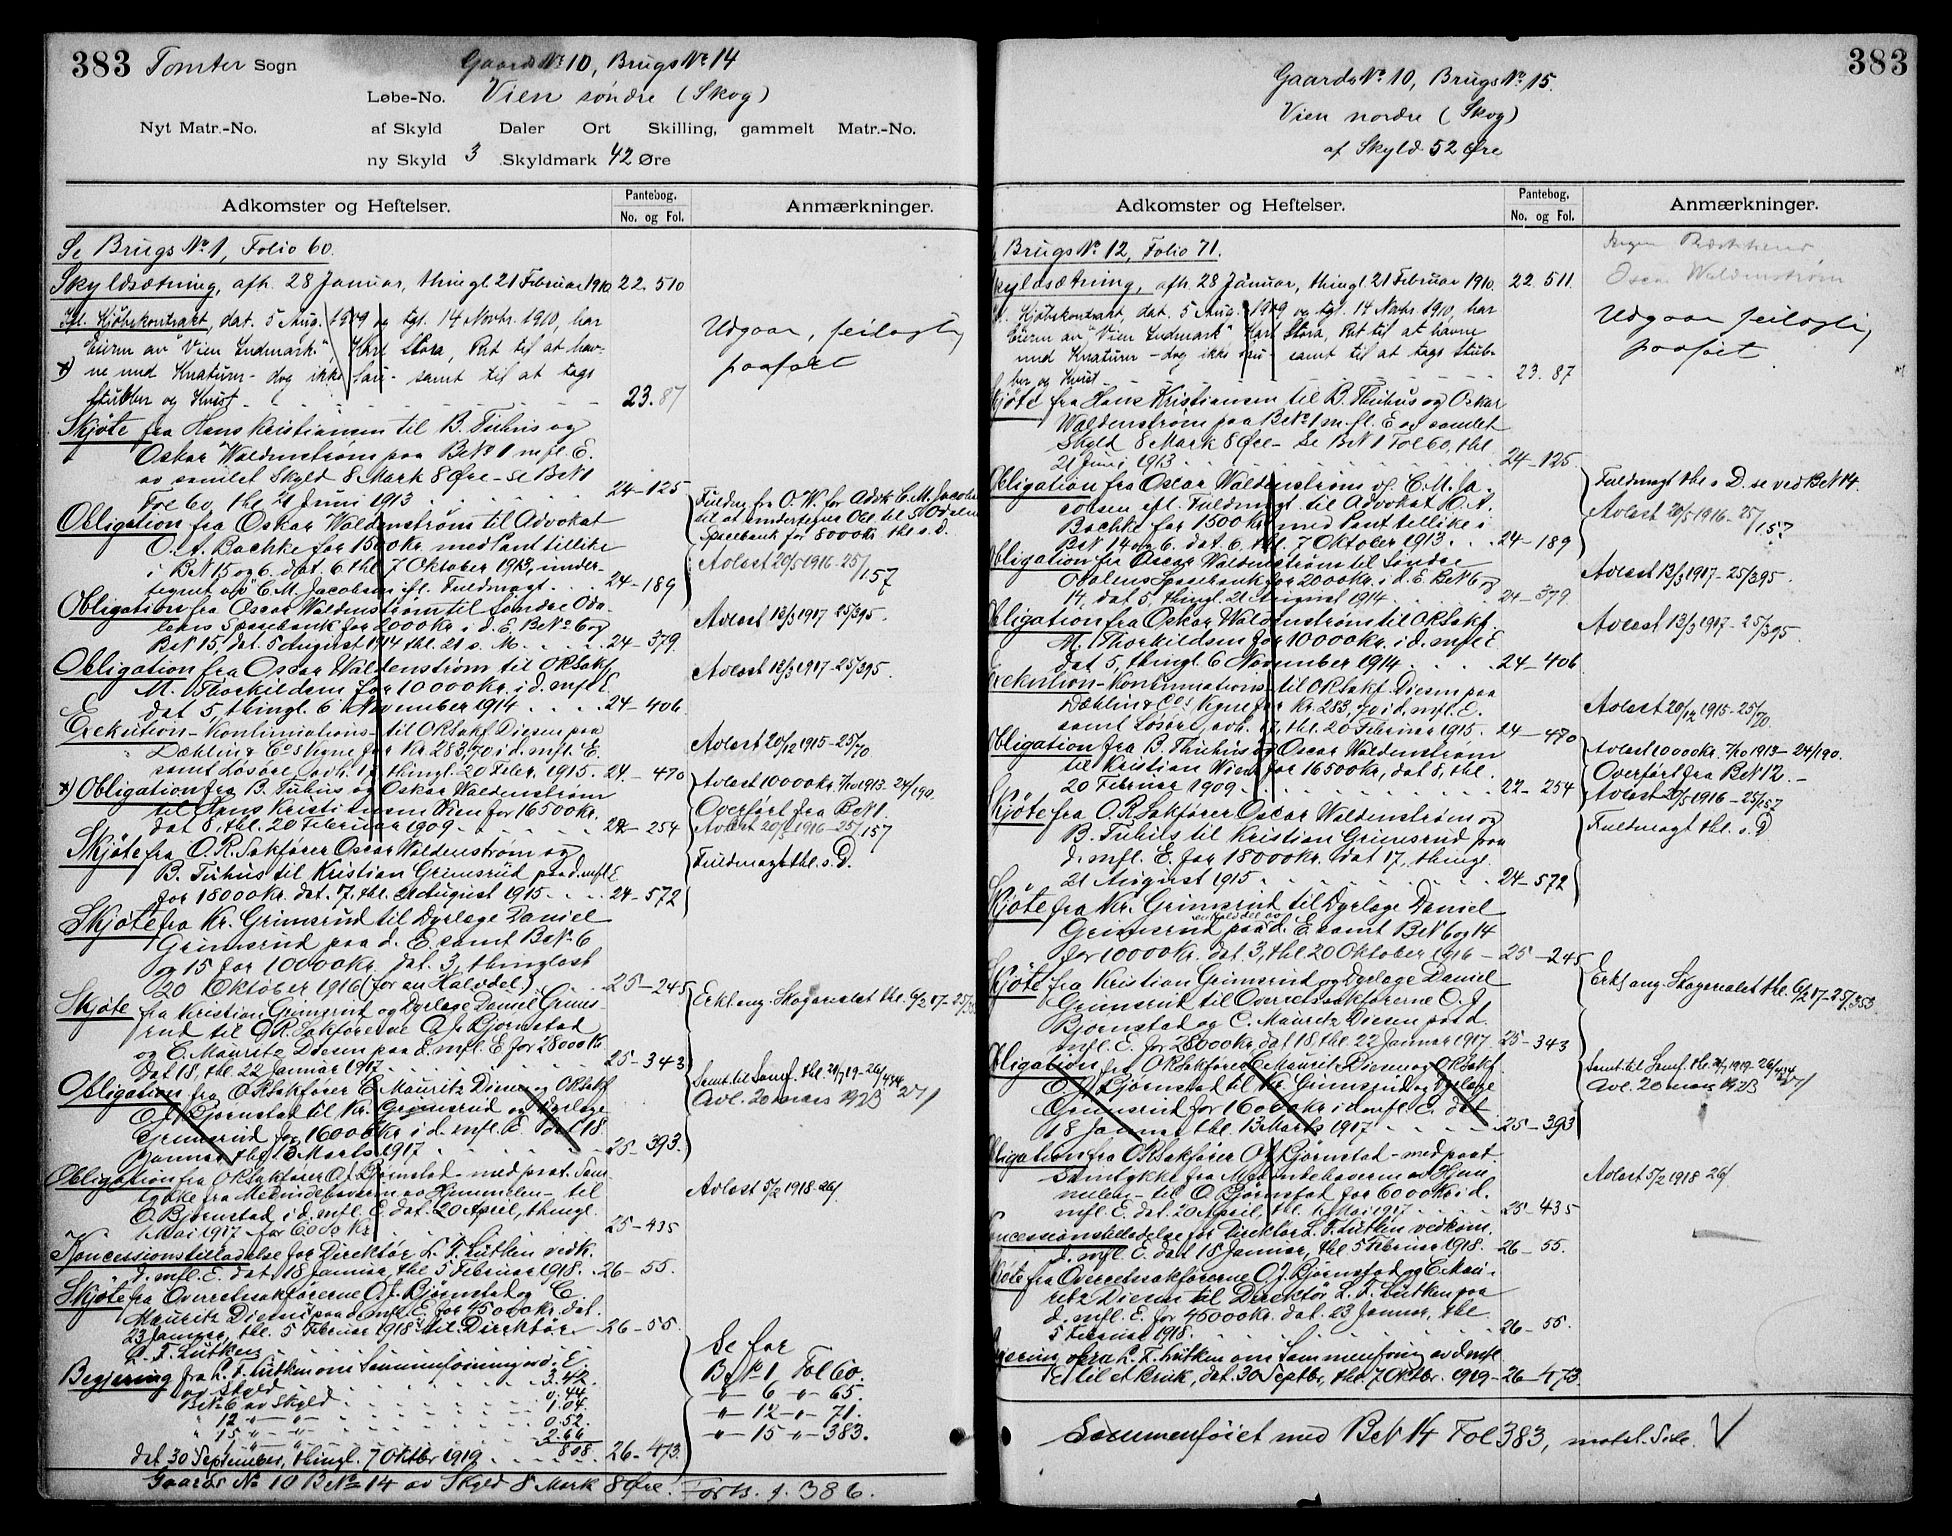 383 Tomter Sogn
Gaards No 10, Brugs No 14
Løbe-No. Vien søndre (Skog)
Nyt Matr.-No. af Skyld Daler Ort Skilling, gammelt Matr.-No.
ny Skyld 3 Skyldmark 42 Øre
Adkomster og Heftelser. Pantebog. No. og Fol. Anmærkninger.
Se Brugs No 1, Folio 60.
Skyldsætning, afh. 28 Januar, thingl 21 Februar 1910. 22. 510
Ifl. Kjøbekontrakt, dat. 5 Aug. 1909 og tgl. 14 Novbr. 1910, har
Eieren av "Vien Indmark", Karl Stora, Ret til at hav-
x) ne med Kreaturer - dog ikke sau - samt til at tage
stubber og Kvist 23. 87
Udgaar, feilagtig
paaført
Skjøte fra Hans Kristiansen til B. Tuhus og
Oskar Waldenstrøm paa B No 1 m. fl. E.
av samlet Skyld 8 Mark 8 Øre - Se B No 1
Fol 60, thl 21 Juni 1913 24-125
Obligation fra Oskar Waldenstrøm til Advokat
O. A. Bachke for 1500 kr. med Pant tillike
i B No 15 og 6. dat. 6. thl. 7 Oktober 1913, under-
tegnet av C. M. Jacobsen ifl. Fuldmagt 24-189
Fuldm. fra O. W. for Advk C. M. Jacobsen
til at undertegne Obl. til S. Odalen
Sparebank for 8000 kr. thl s. d.
Avlæst 20/5 1916-25/157
Obligation fra Oscar Waldenstrøm til Søndre Oda-
lens Sparebank for 2000 kr. i d. E. B No 6 og
B No 15, dat. 5 August 1914 thl. 21 s. M. 24-379.
Avlæst 13/3 1917 25/395.
Obligation fra Oscar Waldenstrøm til ORSakf.
M. Thorkildsen for 10000 kr. i d. mfl. E.
dat 5, thingl. 6 November 1914 24-406
Avlæst 13/3 1917-25/395.
Exekution-Kontinuations- til ORSakf Diesen paa
Dæhlin & Co's Vegne for Kr. 283,70 i d. mfl. E.
samt Løsøre, avh. 17, thingl. 20 Febr. 1915. 24-470
Avlæst 20/12 1915-25/70
x) Obligation fra B. Tuhus og Oskar Waldenstrøm
til Hans Kristiansen Vien for 16500 kr.
dat 8, thl. 20 Februar 1909 22-254
Avlæst 10000 kr. 7/10 1913-24/190.
Overført fra B No 1.
Avlæst 20/5 1916-25/157
Skjøte fra O. R. Sakfører Oscar Waldenstrøm og
B. Tuhus til Kristian Grimsrud paa d. mfl E
for 18000 kr. dat. 7, thl. 21 August 1915 24-572
Fuldmagt thl. s. D.
Skjøte fra Kr. Grimsrud til Dyrlæge Daniel
Grimsrud paa d. E. samt B No 6
og 15 for 10000 kr. dat. 3, thinglæst
20 Oktober 1916 (for en Halvdel) 25-245
Skjøte fra Kristian Grimsrud og Dyrlæge Daniel Grims-
rud til O. R. Sakførerne O. J. Bjørnstad
og C. Mauritz Diesen paa d. mfl. E. for 28000 kr.
dat 18, thl. 22 Januar 1917 25-343
Erkl. ang. Skogarealet thl. 6/2 17-25/353
Obligation fra ORSakfører C. Mauritz Diesen og ORSakf
O. J. Bjørnstad til Kr. Grimsrud og Dyrlæge
Grimsrud for 16000 kr. i d. mfl. E. dat 18
Januar thl. 13 Marts 1917 25-393.
Samt. til Samf. thl. 21/7 19-26/434
Avl. 20 mars 1923 27/
Obligation fra ORSakfører O. J. Bjørnstad - med paat. Sam-
tykke fra Medindehaveren av Hjemmelen - til
O. Bjørnstad, i d. mfl. E. dat. 20 April, thingl.
1 Mai 1917 - for 6000 kr. 25-435
Avlæst 5/2 1918-26/
Koncessionstilladelse for Direktør L. F. Lütken vedk.
d. mfl. E. dat. 18 Januar, thl. 5 Februar 1918. 26-55.
Skjøte fra Overretssakførerne O. J. Bjørnstad og C.
Mauritz Diesen paa d. mfl. E. for 45000 kr. dat.
23 Januar, thl. 5 Februar 1918 til Direktør 26-55.
L. F. Lütken
Begjæring fra L. F. Lütken om Sammenføining av d. E.
av Skyld 3.42.
B No 6 av Skyld 0.44
" 12 " " 1.04.
" 15 " " 0.52.
2.66
8.08.
dat 30 September, thingl. 7 Oktbr 1919 26-473.
Se for
B No 1, Fol 60.
" 6 " 65.
" 12 " 71.
" 15 " 383.
Gaards No 10 B No 14 av Skyld 8 Mark 8 Øre. Forts. f. 386.
383
Gaards No 10, Brugs No 15.
Vien nordre (Skog)
af Skyld 52 Øre
Adkomster og Heftelser. Pantebog. No. og Fol. Anmærkninger.
Brugs No 12, Folio 71.
Oscar Waldenstrøm
Skyldsætning, afh. 28 Januar, thingl 21 Februar 1910. 22. 511.
Ifl. Kjøbekontrakt, dat. 5 Aug. 1909 og tgl. 14 Novbr. 1910, har
Eieren av "Vien Indmark" Karl Stora, Ret til at havne
med Kreaturer - dog ikke sau - samt til at tage Stub-
ber og Kvist 23. 87
Udgaar, feilagtig
paaført
Skjøte fra Hans Kristiansen til B. Thuhus og Oskar
Waldenstrøm paa B No 1 m. fl. E av samlet
Skyld 8 Mark 8 Øre - Se B No 1 Fol 60, thl
21 Juni 1913 24-125
Obligation fra Oscar Waldenstrøm v. C. M. Ja-
cobsen efl. Fuldmagt til Advokat O. A.
Bachke for 1500 kr. med Pant tillike i
B No 14 og 6. dat. 6. thl. 7 Oktober 1913. 24-189
Fuldmagt thl. s. D. se ved B No 14.
Avlæst 20/5 1916-25/157
Obligation fra Oscar Waldenstrøm til Søndre
Odalens Sparebank for 2000 kr. i d. E. B No 6 og
14, dat 5, thingl. 21 August 1914 24-379
Avlæst 13/3 1917-25/395.
Obligation fra Oskar Waldenstrøm til ORSakf.
M. Thorkildsen for 10000 kr. i d. mfl E
dat 5, thingl. 6 November 1914 24-406
Avlæst 13/3 1917-25/395.
Exekution-Kontinuations- til ORSakf. Diesen paa
Dæhlin & Co's Vegne for Kr. 283,70 i d. mfl. E.
samt Løsøre, avh. 17, thl. 20 Februar 1915. 24-470
Avlæst 20/12 1915-25/70
Obligation fra B. Thuhus og Oscar Waldenstrøm
til Kristian Wien for 16500 kr, dat 5, thl.
20 Februar 1909 22-254
Avlæst 10000 kr. 7/10 1913-24/190.
Overført fra B No 12.-
Avlæst 20/5 1916-25/157
Skjøte fra O. R. Sakfører Oscar Waldenstrøm og
B. Tuhus til Kristian Grimsrud paa
d. mfl. E. for 18000 kr. dat 17, thingl.
21 August 1915 24-572
Fuldmagt thl. s. D
Skjøte fra Kr. Grimsrud til Dyrlæge Daniel
en Halvdel av
Grimsrud paa d. E. samt B No 6 og 14
for 10000 kr. dat. 3, thl. 20 Oktober 1916 - 25-245
Skjøte fra Kristian Grimsrud og Dyrlæge Daniel
Grimsrud til Overretssakførerne O. J.
Bjørnstad og C. Mauritz Diesen paa d.
mfl. E. for 28000 kr, dat 18, thl. 22 Januar 1917. 25-343
Erkl. ang. Skogarealet thl. 6/2 17-25/353
Obligation fra ORSakfører C. Mauritz Diesen og ORSakf.
O. J. Bjørnstad til Kr. Grimsrud og Dyrlæge
Grimsrud for 16000 kr. i d. mfl. E. dat
18 Januar thl. 13 Marts 1917 25-393
Samt. til Samf. thl. 21/7 1919-26/434
Avl. 20 mars 1923 27/
Obligation fra ORSakfører O. J. Bjørnstad - med paat.
Samtykke fra Medindehaverne av Hjem-
melen - til O. Bjørnstad for 6000 kr. i d.
mfl. E. dat. 20 April, thl. 1 Mai 1917 25-435
Avlæst 5/2 1918 26/
Koncessionstilladelse for Direktør L. F. Lütken vedkom.
d. mfl. E. dat 18 Januar, thl. 5 Februar 1918. 26-55.
Skjøte fra Overretssakførerne O. J. Bjørnstad og C. Mau-
ritz Diesen til Direktør L. F. Lütken paa
d. mfl. E. for 45000 kr. dat. 23 Januar, thl.
5 Februar 1918. 26-55.
Begjæring fra L. F. Lütken om Sammenføining av d. mfl
E til et bruk, dat. 30 Septbr, thl. 7 Oktbr. 1919 - 26-473.
Sammenføiet med B No 14 Fol 383, motst. Side. V